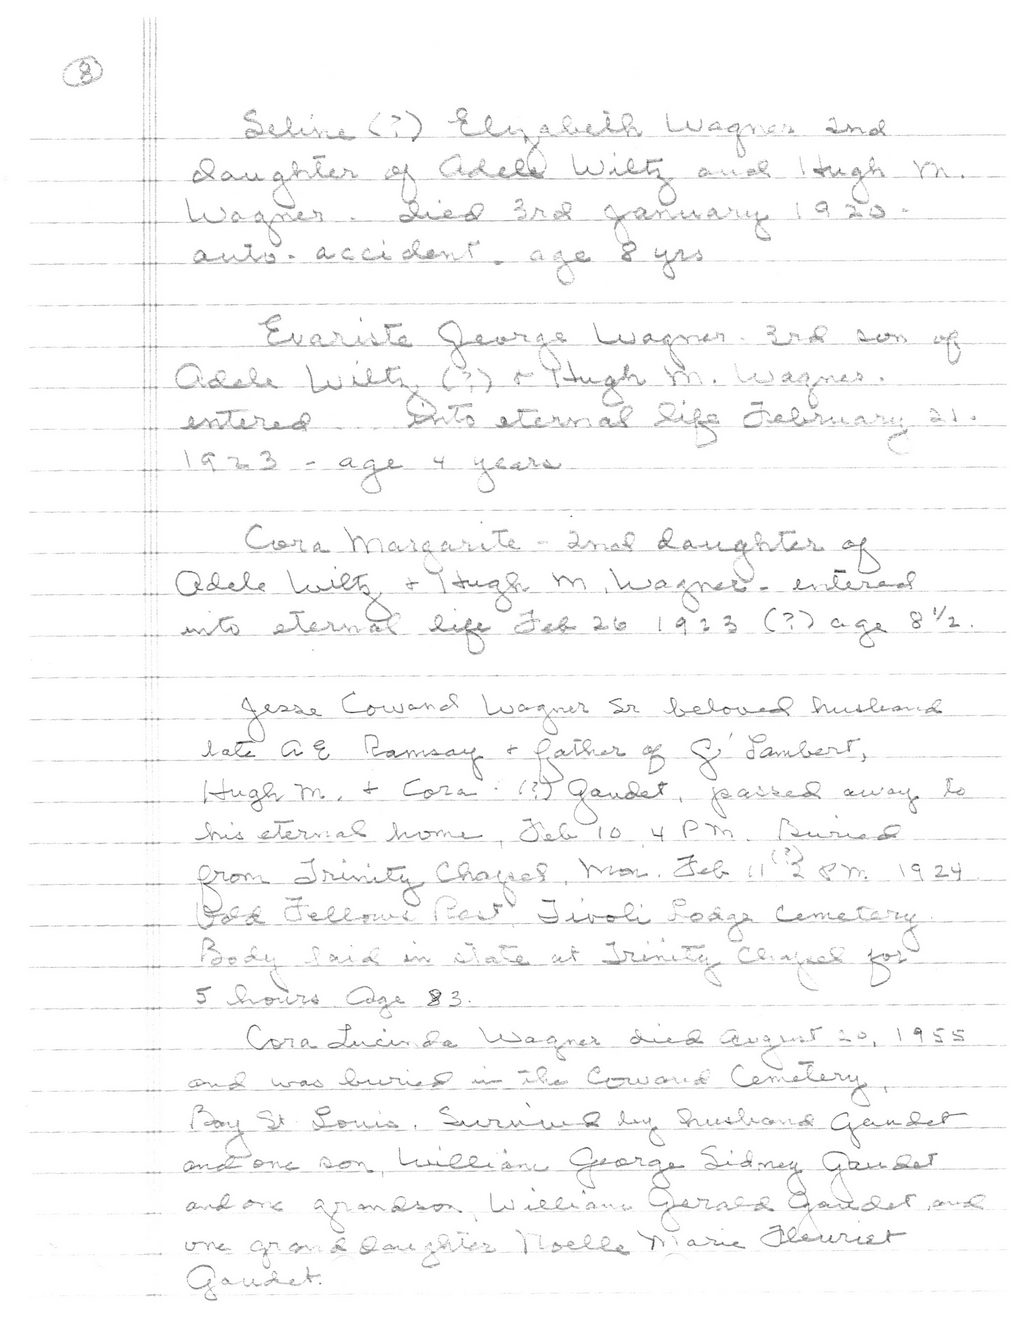 8
Seline (?) Elizabeth Wagner 2nd
daughter of Adele Wiltz and Hugh M.
Wagner. died 3rd January 1920.
auto. accident. age 8 yrs
Evariste George Wagner. 3rd son of
Adele Wiltz (?) + Hugh M. Wagner.
entered ... into eternal life February 21.
1923 - age 4 years
Cora Margarite - 2nd daughter of
Adele Wiltz + Hugh M. Wagner - entered
into eternal life Feb 26 1923 (?) age 8 1/2.
Jesse Cowand Wagner Sr beloved husband
late A E Ramsay + father of G' Lambert,
Hugh M. + Cora. (?) Gaudet, passed away to
his eternal home, Feb 10, 4 PM. Buried
from Trinity Chapel, Mon. Feb 11 (?) 2 PM. 1924
Odd Fellows Rest, Tivoli Lodge Cemetery.
Body laid in state at Trinity Chapel for
5 hours Age 83.
Cora Lucinda Wagner died August 20, 1955
and was buried in the Cowand Cemetery,
Bay St. Louis. Survived by husband Gaudet
and one son, William George Sidney Gaudet
and one grandson, William Gerald Gaudet, and
one granddaughter Noelle Marie Fleuriet
Gaudet.